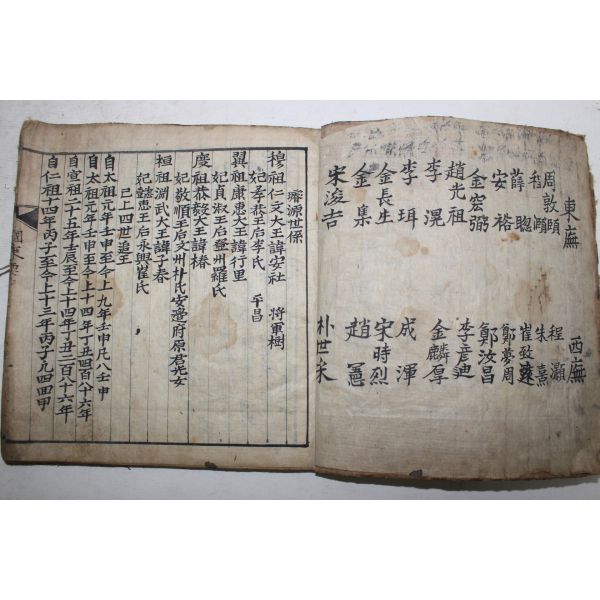 東廡
周敦頤
程頤
薛聰
安裕
金宏弼
趙光祖
李滉
李珥
金長生
金集
宋浚吉
西廡
程灝
朱熹
崔致遠
鄭夢周
鄭汝昌
李彦迪
金麟厚
成渾
宋時烈
趙憲
朴世采
璿源世係
穆祖仁文大王諱安社 將軍樹
妃孝恭王后李氏 平昌
翼祖康惠大王諱行里
妃貞淑王后登州羅氏
度祖恭毅大王諱椿
妃敬順王后文州朴氏安邊府原君光女
桓祖淵武大王諱子春
妃懿惠王后永興崔氏
已上四世追王
自太祖元年壬申至今上九年壬申凡八壬申
自太祖元年壬申至今上十四年丁丑四百八十六年
自宣祖二十五年壬辰至今上十四年丁丑二百八十六年
自仁祖十四年丙子至今上十三年丙子凡四回甲